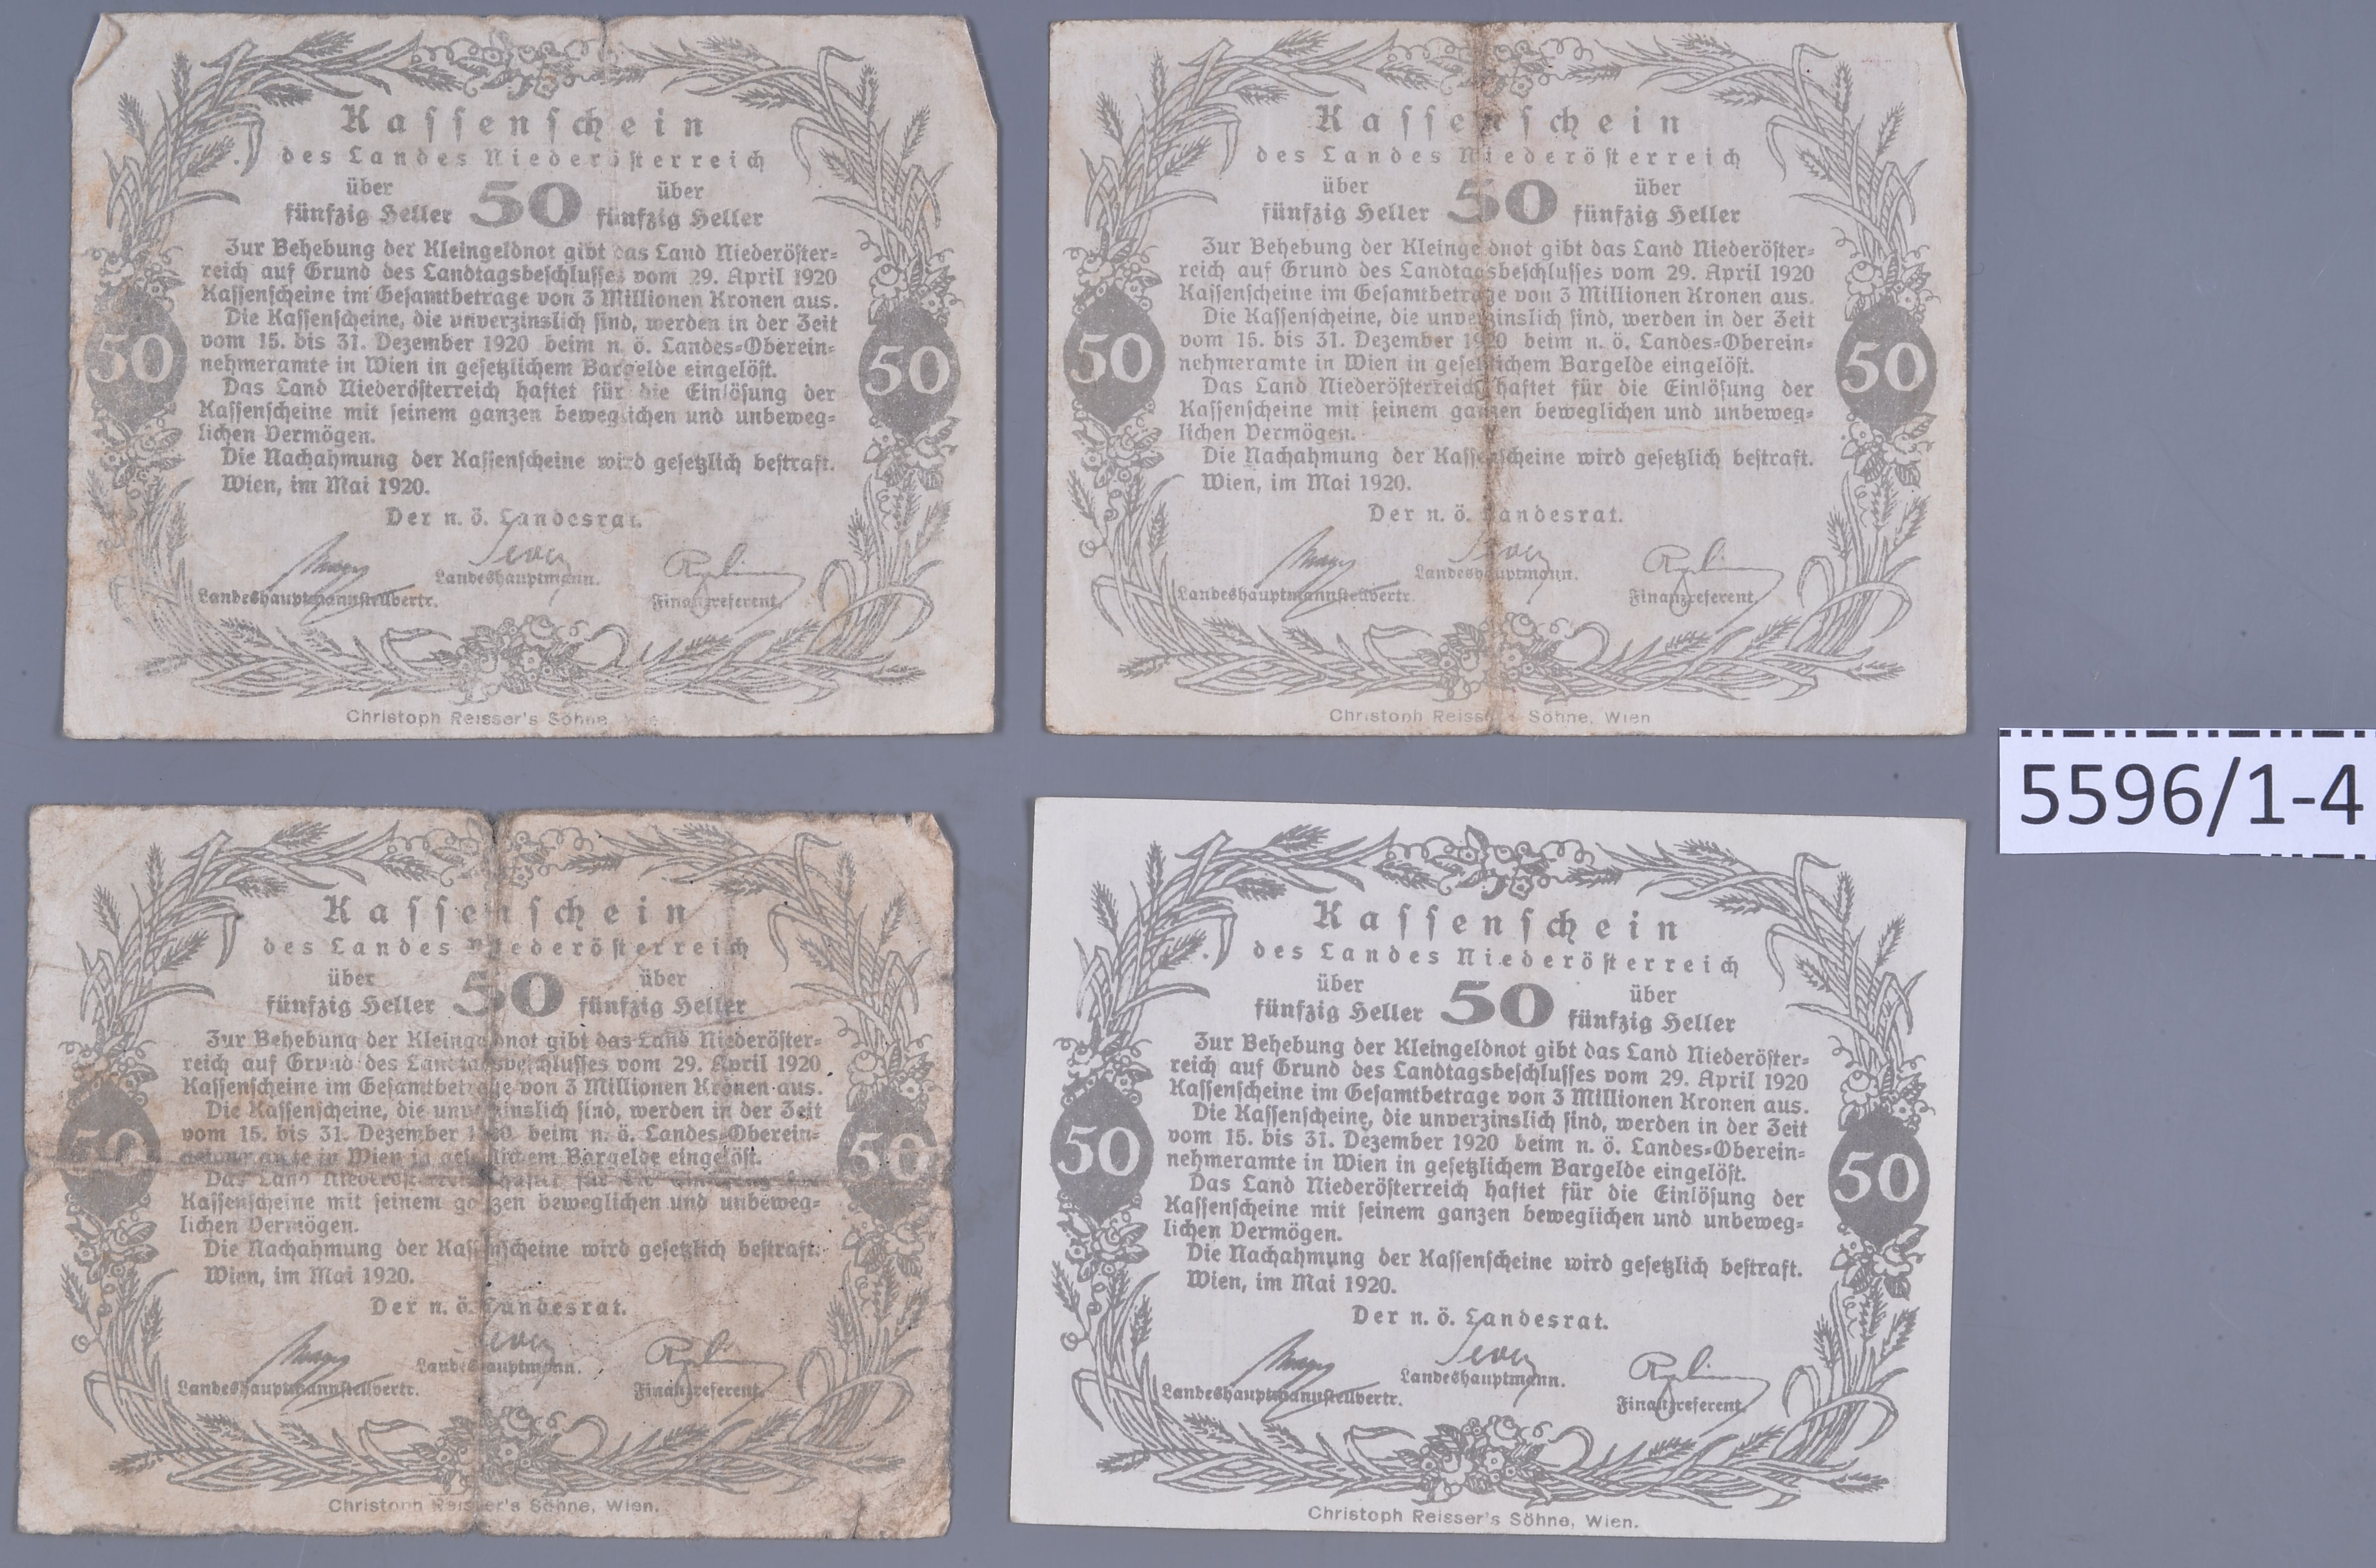 Kassenschein
des Landes Niederösterreich
über 50 über
fünfzig Heller fünfzig Heller
Zur Behebung der Kleingeldnot gibt das Land Niederöster-
reich auf Grund des Landtagsbeschlusses vom 29. April 1920
Kassenscheine im Gesamtbetrage von 3 Millionen Kronen aus.
Die Kassenscheine, die unverzinslich sind, werden in der Zeit
vom 15. bis 31. Dezember 1920 beim n. ö. Landes-Oberein-
nehmeramte in Wien in gesetzlichem Bargelde eingelöst.
Das Land Niederösterreich haftet für die Einlösung der
Kassenscheine mit seinem ganzen beweglichen und unbeweg-
lichen Vermögen.
Die Nachahmung der Kassenscheine wird gesetzlich bestraft.
Wien, im Mai 1920.
50
50
Der n. ö. Landesrat.
Landeshauptmann.
Landeshauptmannstellvertr.
Finanzreferent.
Christoph Reisser's Söhne, Wien.
Kassenschein
des Landes Niederösterreich
über 50 über
fünfzig Heller fünfzig Heller
Zur Behebung der Kleingeldnot gibt das Land Niederöster-
reich auf Grund des Landtagsbeschlusses vom 29. April 1920
Kassenscheine im Gesamtbetrage von 3 Millionen Kronen aus.
Die Kassenscheine, die unverzinslich sind, werden in der Zeit
vom 15. bis 31. Dezember 1920 beim n. ö. Landes-Oberein-
nehmeramte in Wien in gesetzlichem Bargelde eingelöst.
Das Land Niederösterreich haftet für die Einlösung der
Kassenscheine mit seinem ganzen beweglichen und unbeweg-
lichen Vermögen.
Die Nachahmung der Kassenscheine wird gesetzlich bestraft.
Wien, im Mai 1920.
50
50
Der n. ö. Landesrat.
Landeshauptmann.
Landeshauptmannstellvertr.
Finanzreferent.
Christoph Reisser's Söhne, Wien
5596/1-4
Kassenschein
des Landes Niederösterreich
über 50 über
fünfzig Heller fünfzig Heller
Zur Behebung der Kleingeldnot gibt das Land Niederöster-
reich auf Grund des Landtagsbeschlusses vom 29. April 1920
Kassenscheine im Gesamtbetrage von 3 Millionen Kronen aus.
Die Kassenscheine, die unverzinslich sind, werden in der Zeit
vom 15. bis 31. Dezember 1920 beim n. ö. Landes-Oberein-
nehmeramte in Wien in gesetzlichem Bargelde eingelöst.
Das Land Niederösterreich haftet für die Einlösung der
Kassenscheine mit seinem ganzen beweglichen und unbeweg-
lichen Vermögen.
Die Nachahmung der Kassenscheine wird gesetzlich bestraft.
Wien, im Mai 1920.
50
50
Der n. ö. Landesrat.
Landeshauptmann.
Landeshauptmannstellvertr.
Finanzreferent.
Christoph Reisser's Söhne, Wien.
Kassenschein
des Landes Niederösterreich
über 50 über
fünfzig Heller fünfzig Heller
Zur Behebung der Kleingeldnot gibt das Land Niederöster-
reich auf Grund des Landtagsbeschlusses vom 29. April 1920
Kassenscheine im Gesamtbetrage von 3 Millionen Kronen aus.
Die Kassenscheine, die unverzinslich sind, werden in der Zeit
vom 15. bis 31. Dezember 1920 beim n. ö. Landes-Oberein-
nehmeramte in Wien in gesetzlichem Bargelde eingelöst.
Das Land Niederösterreich haftet für die Einlösung der
Kassenscheine mit seinem ganzen beweglichen und unbeweg-
lichen Vermögen.
Die Nachahmung der Kassenscheine wird gesetzlich bestraft.
Wien, im Mai 1920.
50
50
Der n. ö. Landesrat.
Landeshauptmann.
Landeshauptmannstellvertr.
Finanzreferent.
Christoph Reisser's Söhne, Wien.